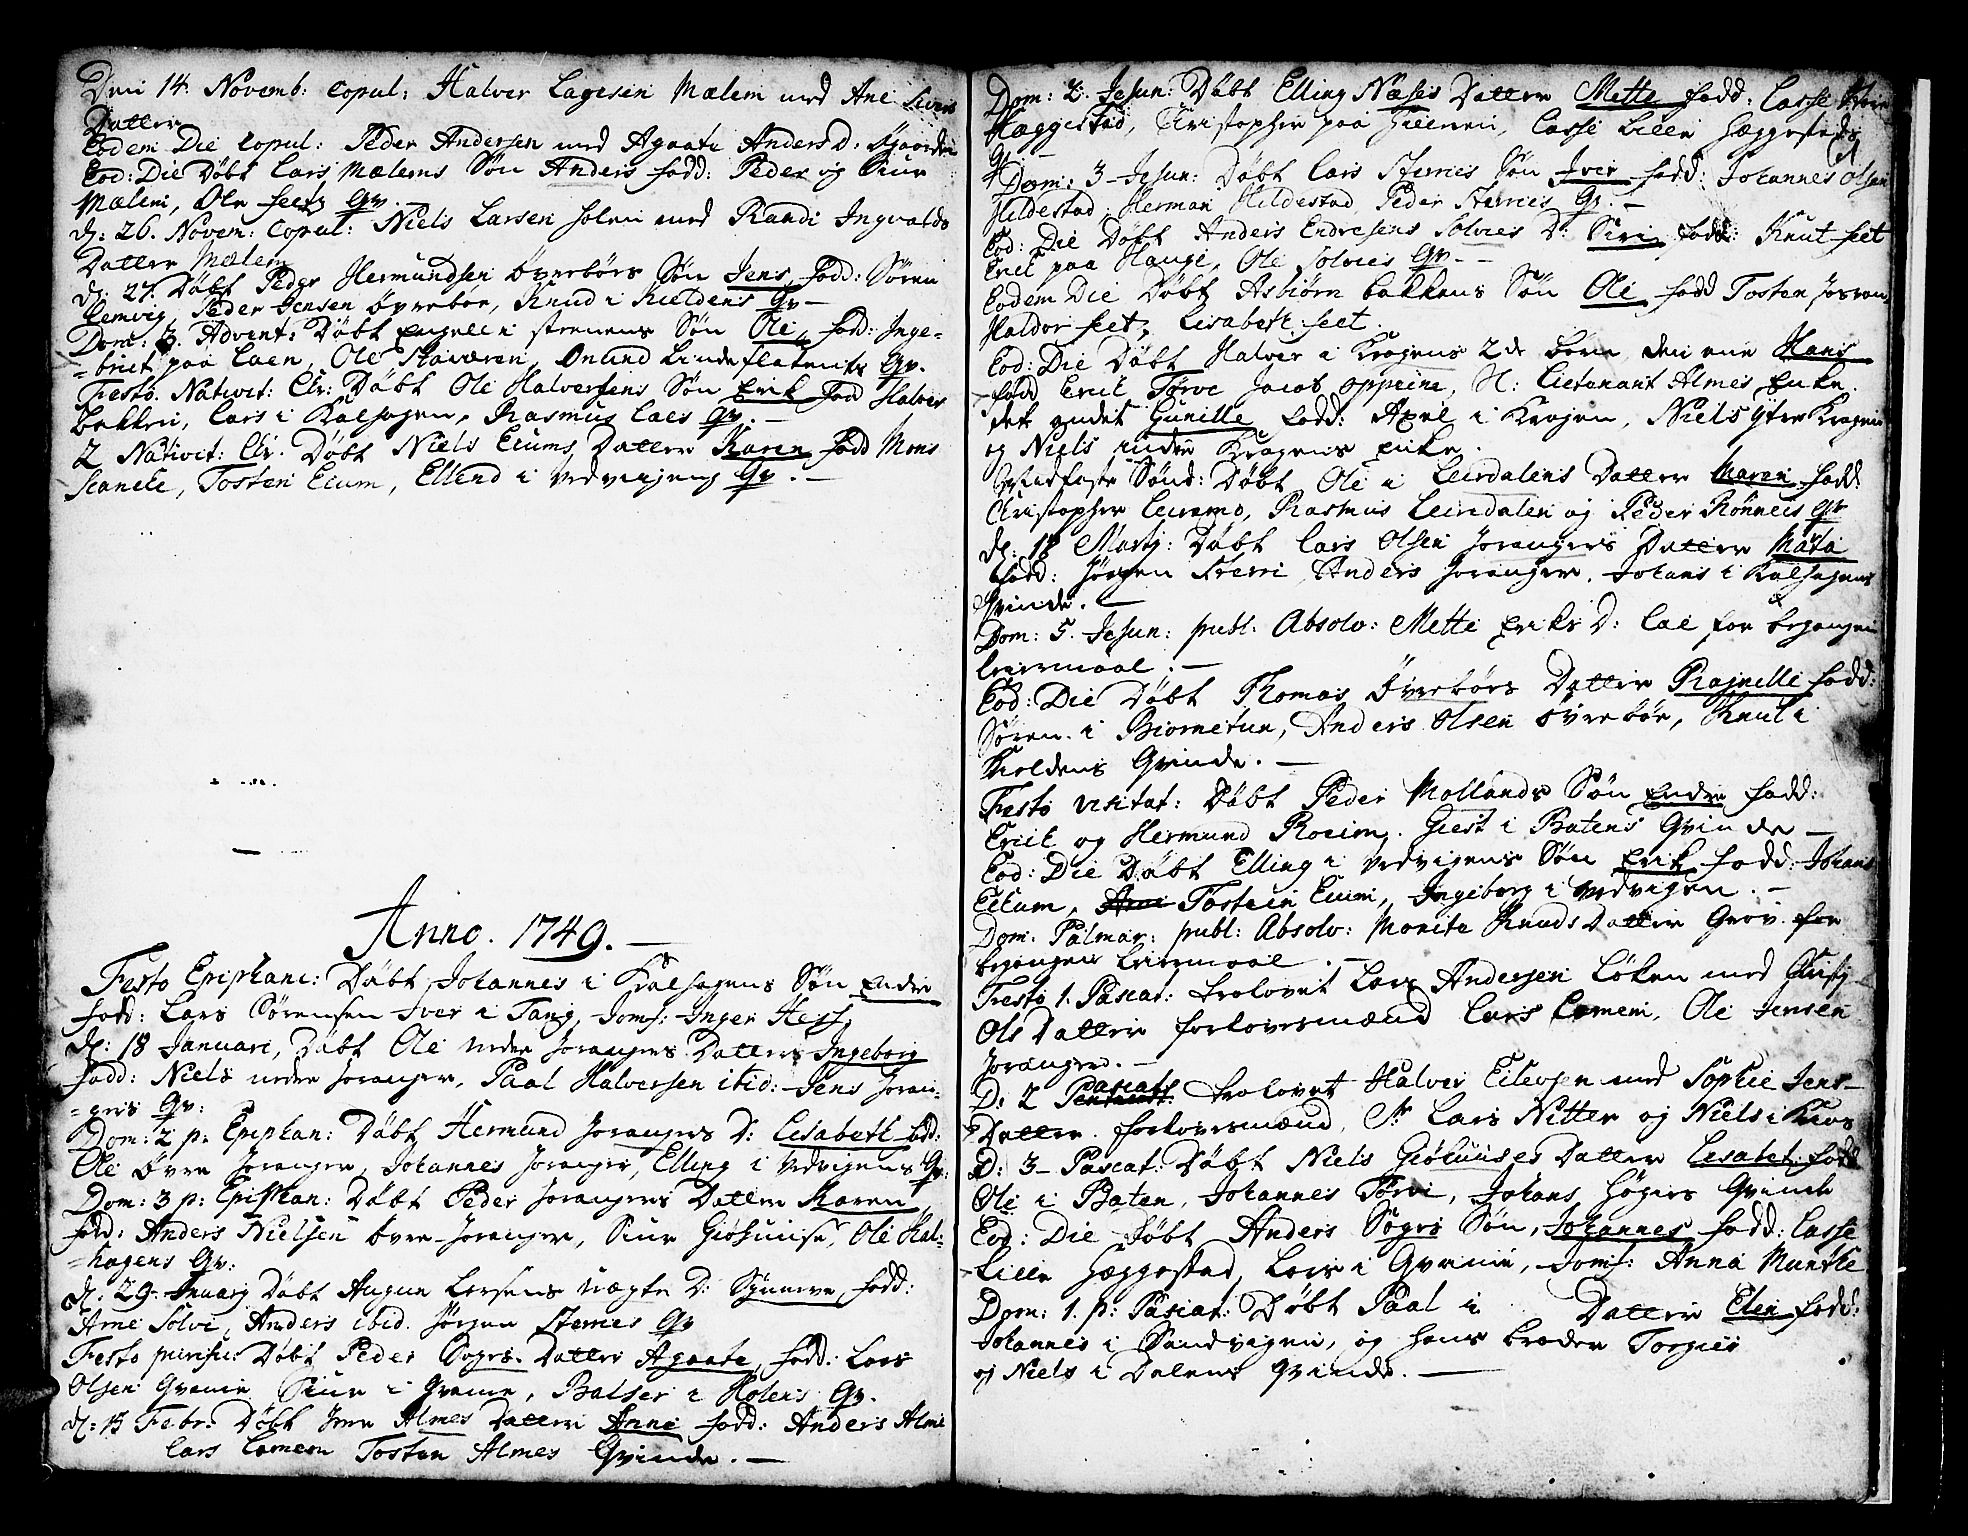 Den 14. Novemb: Copul: Halver Lagesen Mælem med Ane Siurs
Datter
Eodem Die Copul: Peder Andersen med Agaata Anders D:
Eod: Die Döbt Lars Mælems Sön Anders Fadd: Peder og Siur
Mælem, Ole Seetz Qv.
d: 26. Novem: Copul: Niels Larsen Solem med Randi Ingvalds
Datter Mælem
d: 27. Döbt Peder Hermundsen Övrebörs Sön Jens Fadd: Sören
Lemvig, Peder JensenÖvreböe, Knud i Kuldens Qv —
Dom: 3. Advent: Döbt Engelli i strenens Sön Ole, Fadd: Inge-
=brict paa Laen, Ole Skaaren, Onund Lindeflatents Qv.
Festo. Nativit: Chr: Döbt Ole Halversens Sön Erik Fad Halver
Bakken, Lars i Kalhagen, Rasmus Laes Qv. —
2 Nativit: Chr. Döbt Niels Ecums Datter Karen Fadd Mons
Scancke, Tosten Ecum, Ellend i Vedvigens Qv. —
Anno. 1749. —
Festo Epiphani: Döbt Johannes i Kalhagens Sön Endre
Fadd: Lars Sörensen Iver i Tang, Jomf: Inger Heis
d: 18 Januari, Döbt Ole nedre Jorangers Datter Ingeborg
Fadd: Niels nedre Joranger, Paal Halversen ibid: Jens Joran-
=gers Qv:
Dom: 2 p: Epiphan: Döbt Hermund Jorangers D: Lisabeth Fdd:
Ole Övre Joranger, Johannes Joranger, Elling i Vedvigens Qv:
Dom: 3 p: Epiphan: Döbt Peder Jorangers Datter Karen
Fdd: Anders Nielsen Övre Joranger, Siur Giöhuuse, Ole Kal-
=hagens Qv:
d: 29. Januarj Döbt Augun Larsens D: Synneve Fadd:
Arne Solvi, Anders ibid. Jörgen Sterries Qv
Festo purific: Döbt Peder Sogrs. Datter Agaata, Fadd: Lars
Olsen Qvamme Siur i Qvamme, Balser i Holens Qv.
d: 15 Febr: Döbt Iver Almes Datter Anne Fadd: Anders Alme
Lars Lomem Tosten Almes Qvinde. —
Dom: 2. Jejun: Döbt Elling Næses Datter Mette Fadd: Lasse
Hæggestad, Christopher paa Hillerren, Lasse Lille Hæggestads
Qv. —
Dom: 3 — Jejun: Döbt Lars Sterries Sön Iver Fadd: Johannes Olsen
Hildestad, Herman Hildestad, Peder Sterries Qv. —
Eod: Die Döbt Anders Endresens Solvies D: Siri Fadd: Knut Seet
Eric paa Hauge, Ole Solvies Qv. —
Eodem Die Döbt Asbiörn Bakkens Sön Ole Fadd Tosten
Haldor Seet, Lisabeth Seet.
Eod: Die Döbt Halver i Kragens 2de Börn, den ene Hans
Fadd Eric Törve Jacob Opprine, Sl: Lietenant Almes Enke.
det andet Gunille Fadd: Axel i Kragen, Niels Ytre Kragen
og Niels indre Kragens Enke.
Midfaste Sönd: Döbt Ole i Leirdalens Datter Maren Fadd:
Christopher Leirmo, Rasmus Leirdalen og Peder Rönneis Qv
d: 18 Martij: Döbt Lars Olsen Jorangers Datter Marta
Fadd: Jörgen Sterri, Anders Joranger, Johans i Kalhagens
Qvinde. —
Dom: 5. Jejun: publ: Absolv: Mette Eriks D: Lae for begangen
Leiermaal. —
Eod: Die Döbt Thomas Övrebörs Datter Ragnelle Fadd:
Sören i Biornetun, Anders Olsen Övreböe, Knut i
Koldens Qvinde. —
Festo visitat: Döbt Peder Mollands Sön Endre Fadd:
Eric og Hermund Roeim, Giest i Batens Qvinde —
Eod: Die Döbt Elling i Vedvigens Sön Erik Fadd: Johans
Eikum, Arne Tostein Ecum, Ingeborg i Vedvigen. —
Dom: Palmar: publ: Absolv: Marite Knuds Datter Grov for
begangen Leiermaal. —
Festo 1. Pascat: trolovet Lars Andersen Löken med
Ols Datter forlovesmænd Lars Lomem, Ole Jensen
Joranger. —
D: 2 Pascat: trolovet Halver Eilevsen med Sophie Jens-
Datter. forlovesmænd, Sr Lars Nitter og Niels i
D: 3 — Pascat: Döbt Niels Giöhuuses Datter Lisabet Fadd
Ole i Baten, Johannes Törvi, Johans Högis Qvinde
Eod: Die Döbt Anders Sogrs Sön, Johannes Fadd: Lasse
Lille Hæggestad, Lars i Qvamme, Jomf: Anna Munthe
Dom: 1. p: Pascat: Döbt Paal i Datter Elen Fadd:
Johannes i Sandvigen, og hans broder Torgier
og Niels i Dalens Qvinde. —